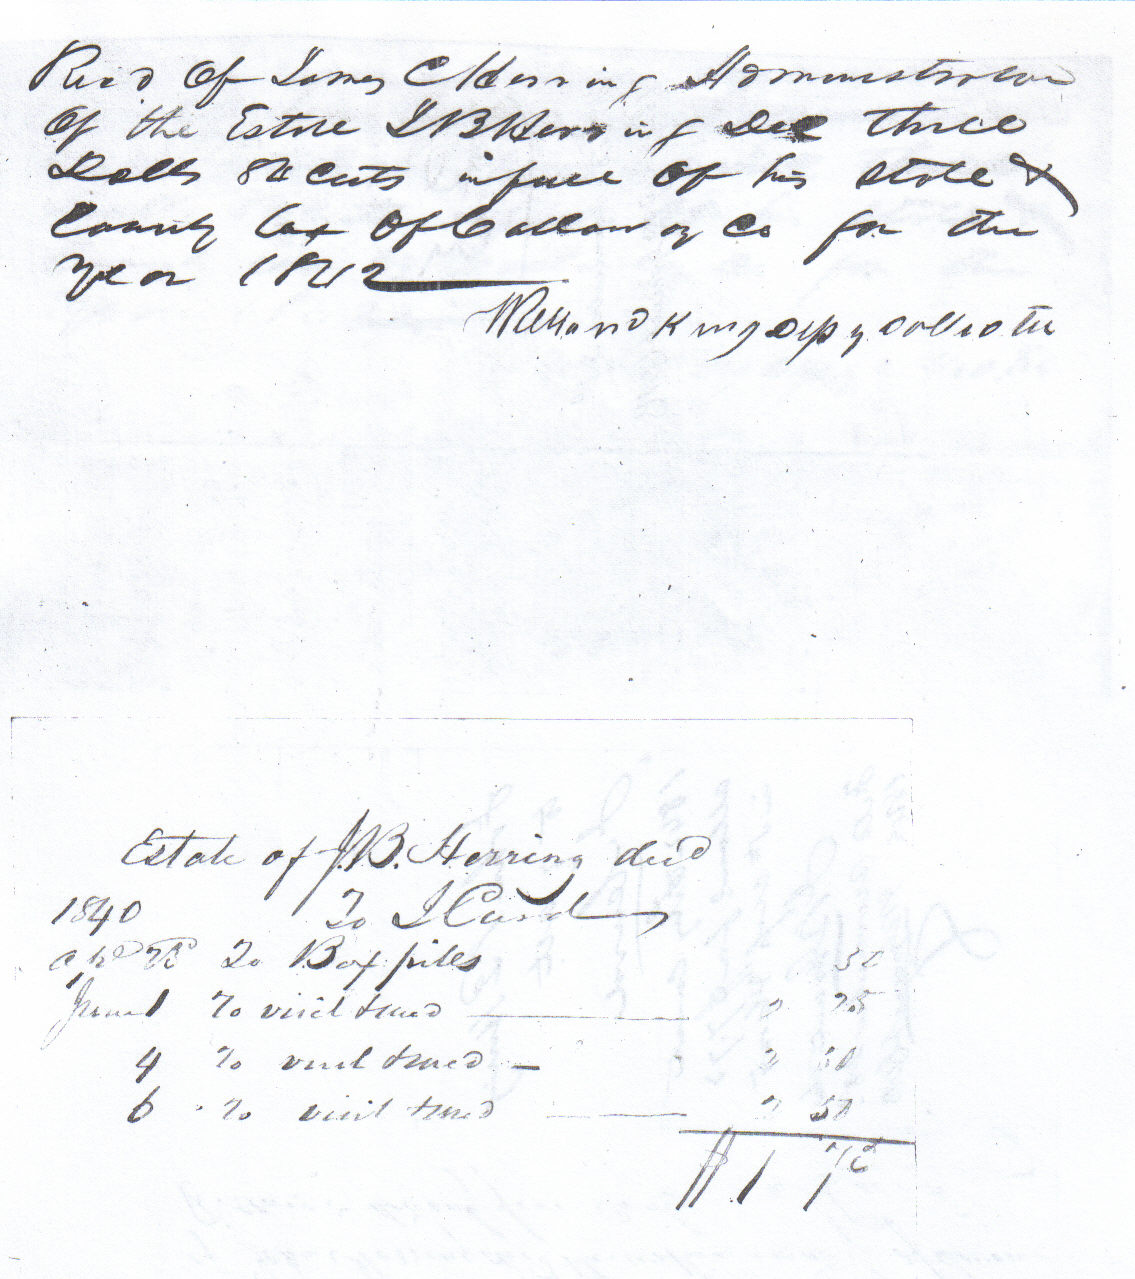 Rec'd Of James C Herring Administrator
Of the Estate J B Herring Dec three
Dolls 84 Cents in full Of his State &
County tax Of Callaway Co for the
year 1842
King Depy Collector
Estate of J. B. Herring dec'd
1840 To J Card
To Box pills
June 1 To visit & med 2 25
4 To visit & med 2 50
6 To visit & med 2 50